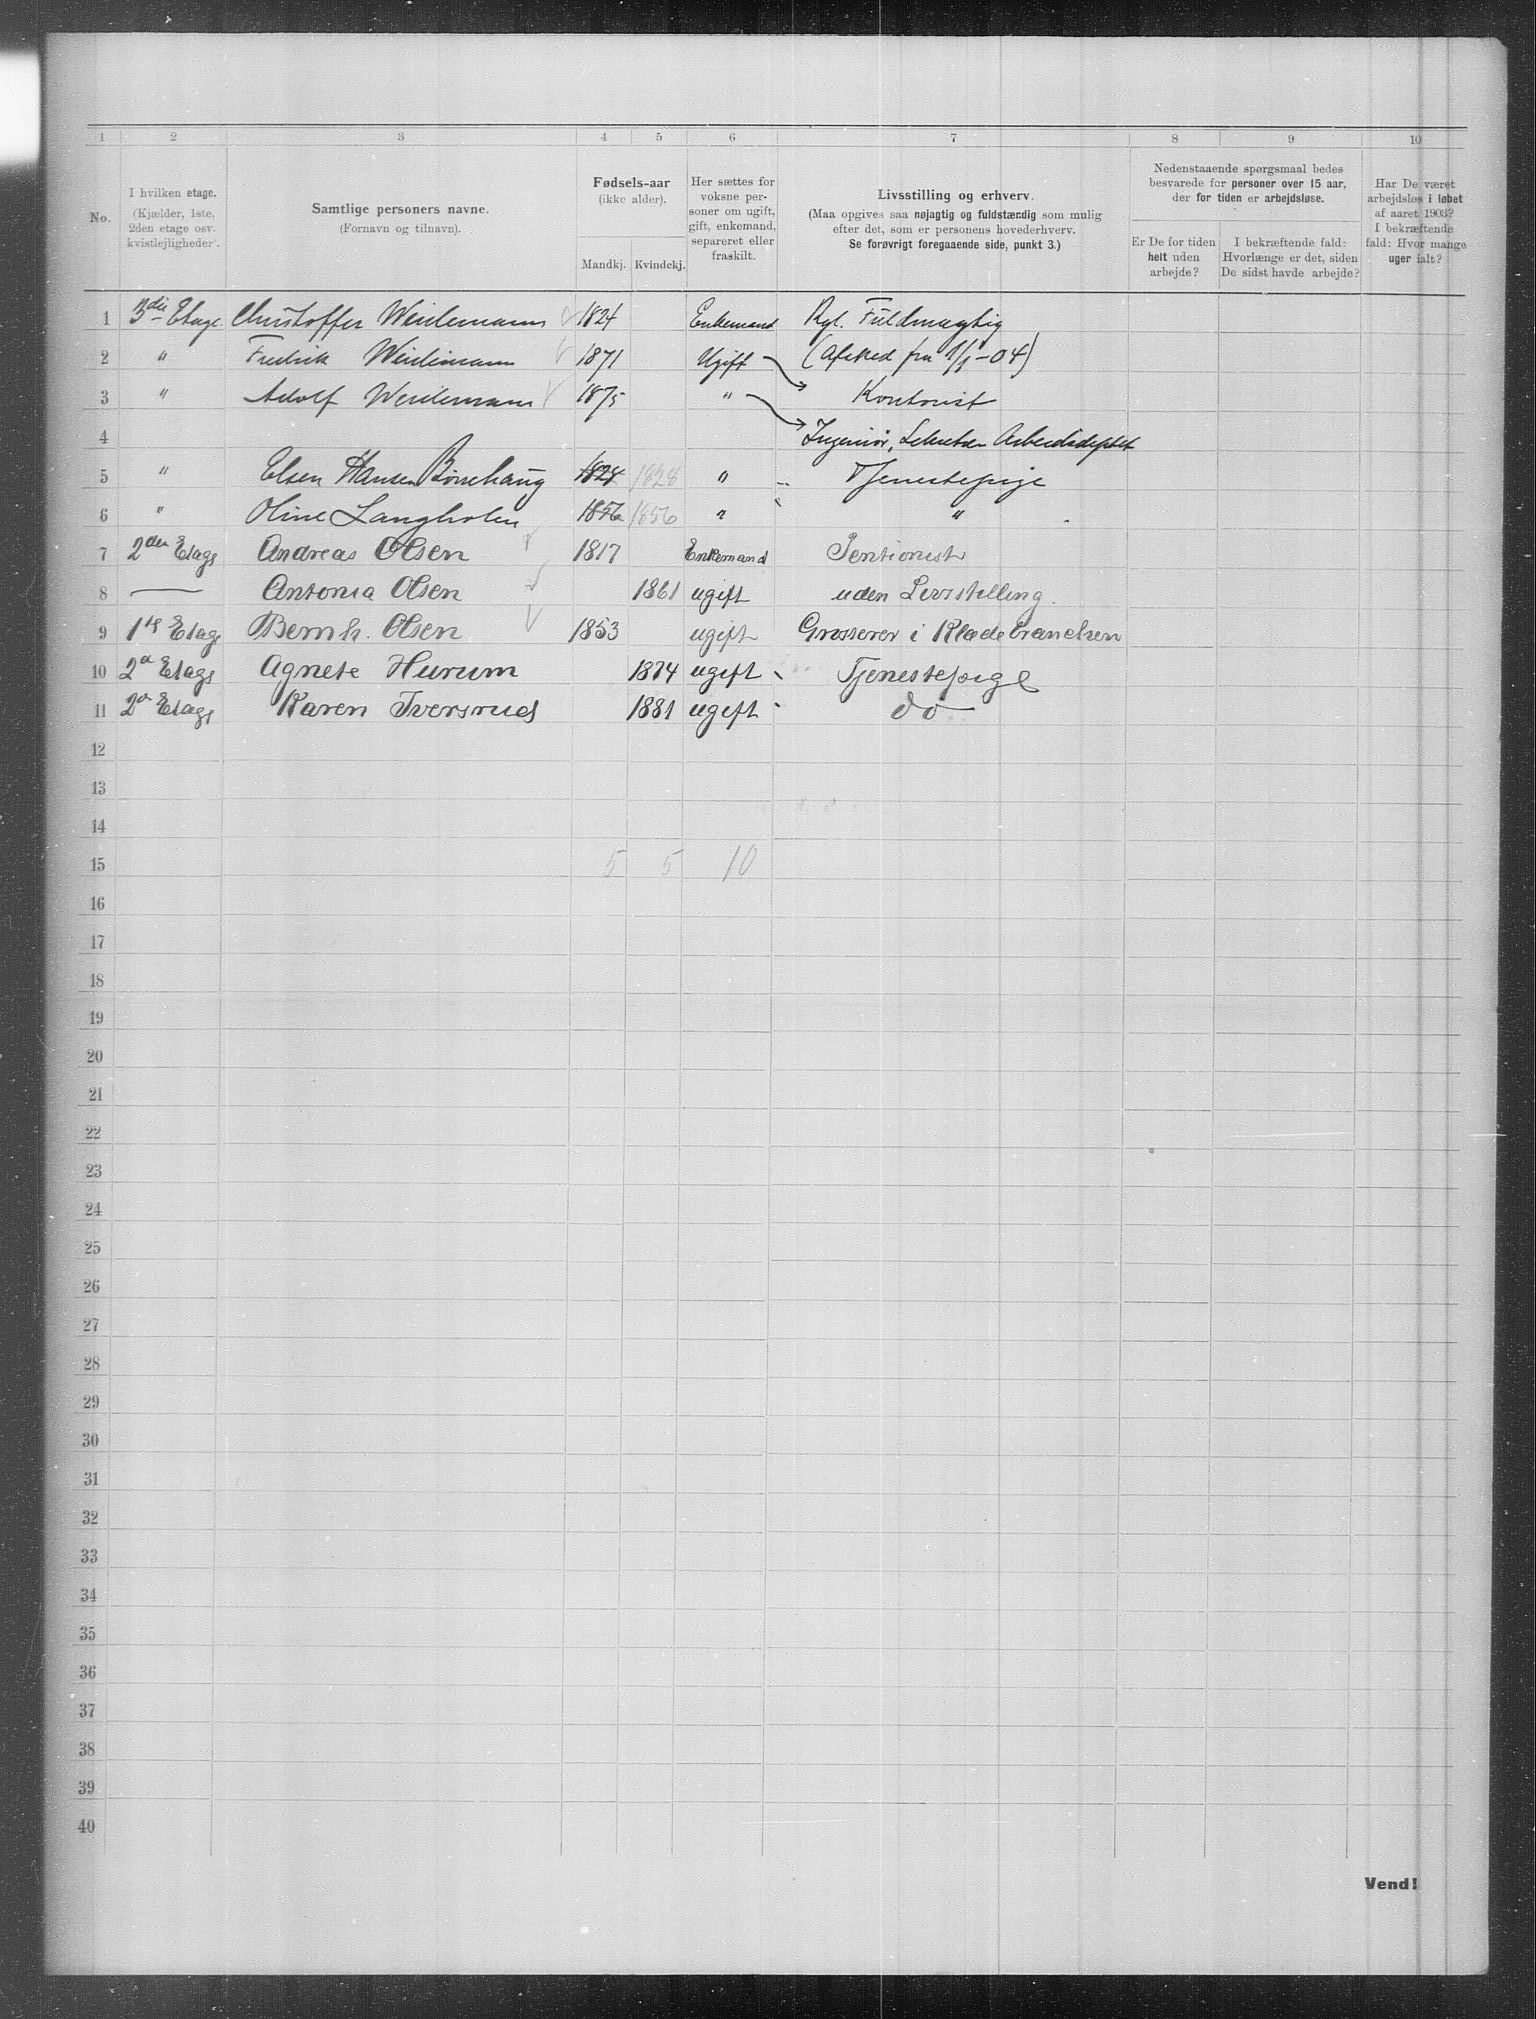 1 2 3 4 5 6 7 8 9 10
No.
I hvilken etage.
(Kjælder, 1ste,
2den etage osv.
kvistlejligheder.
Samtlige personers navne.
(Fornavn og tilnavn).
Fødsels-aar
(ikke alder).
Mandkj. Kvindekj.
Her sættes for
voksne per-
soner om ugift,
gift, enkemand,
separeret eller
fraskilt.
Livsstilling og erhverv.
(Maa opgives saa nøjagtig og fuldstændig som mulig
efter det, som er personens hovederhverv.
Se forøvrigt foregaaende side, punkt 3.)
Nedenstaaende spørgsmaal bedes
besvarede for personer over 15 aar,
der for tiden er arbejdsløse.
Er De for tiden
helt uden
arbejde?
I bekræftende fald:
Hvorlænge er det, siden
De sidst havde arbejde?
Har De været
arbejdsløs i løbet
af aaret 1903?
I bekræftende
fald: Hvor mange
uger ialt?
1 3die Etage Christoffer Weidemann 1824 Enkemand Rgl. Fuldmægtig
2 " Fredrik Weidemann 1871 Ugift (Afsked fra 1/1-04)
3 " Adolf Weidemann 1875 " Kontorist
4 Ingeniør, Sekretær Arbeidsdeptet
5 " Elsen Hansen 1828 1828 " Tjenestepige
6 " Oline Langholen 1856 1856 " "
7 2den Etage Andreas Olsen 1817 Enkemand Pentionist
8 — Antonia Olsen 1861 ugift uden Livsstelling.
9 1ste Etage Bernh. Olsen 1853 ugift Grosserer i Klædebranchen
10 2n Etage Agnete Hurum 1874 ugift Tjenestepige
11 2n Etage Karen Iversrud 1881 ugift do
12
13
14
15 5 5 10
16
17
18
19
20
21
22
23
24
25
26
27
28
29
30
31
32
33
34
35
36
37
38
39
40
Vend!